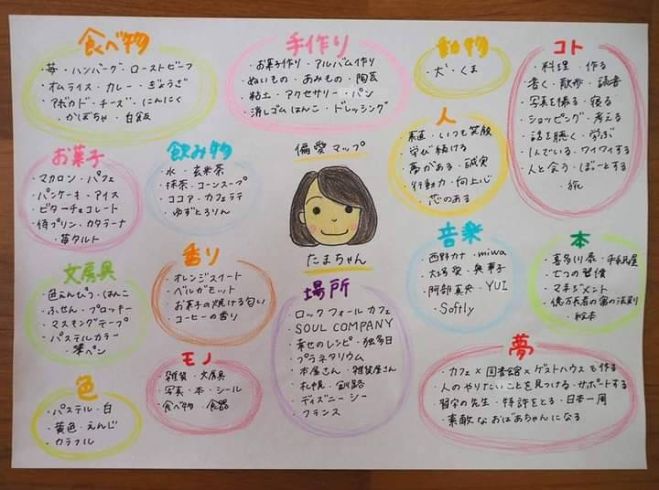 食べ物
・苺・ハンバーグ・ローストビーフ
・オムライス・カレー・ぎょうざ
・アボカド・チーズ・にんにく
・かぼちゃ・白飯
手作り
・お菓子作り・アルバム作り
・ぬいもの・あみもの・陶芸
・粘土・アクセサリー・パン
・消しゴムはんこ・ドレッシング
動物
・犬・くま
コト
・料理・作る
・書く・散歩・読書
・写真を撮る・寝る
・ショッピング・考える
・話を聴く・学ぶ
・ワイワイする
・人と会う・ぼーとする
・旅
人
・素直・いつも笑顔
・学び続ける
・夢がある・誠実
・行動力・向上心
・芯のある
お菓子
・マカロン・パフェ
・パンケーキ・アイス
・ビターチョコレート
・侍プリン・カタラーナ
・苺タルト
飲み物
・水・玄米茶
・抹茶・コーンスープ
・ココア・カフェラテ
・ゆずとろりん
偏愛マップ
たまちゃん
音楽
・西野カナ・miwa
・大塚愛・奥華子
・阿部真央・YUI
・Softly
本
・喜多川泰
・七つの習慣
・マネジメント
・億万長者の富の法則
・絵本
文房具
・色えんぴつ・はんこ
・ふせん・プロッキー
・マスキングテープ
・パステルカラー
・筆ペン
香り
・オレンジスイート
・ベルガモット
・お菓子の焼ける匂い
・コーヒーの香り
場所
・ロックフォールカフェ
・SOUL COMPANY
・幸せのレシピ・独多日
・プラネタリウム
・本屋さん・雑貨屋さん
・札幌・釧路
・ディズニーシー
・フランス
モノ
・雑貨・文房具
・写真・本・シール
・食べ物・食器
色
・パステル・白
・黄色・えんじ
・カラフル
夢
・カフェ×図書館×ゲストハウスを作る
・人のやりたいことを見つける・サポートする
・習字の先生・特許をとる・日本一周
・素敵なおばあちゃんになる